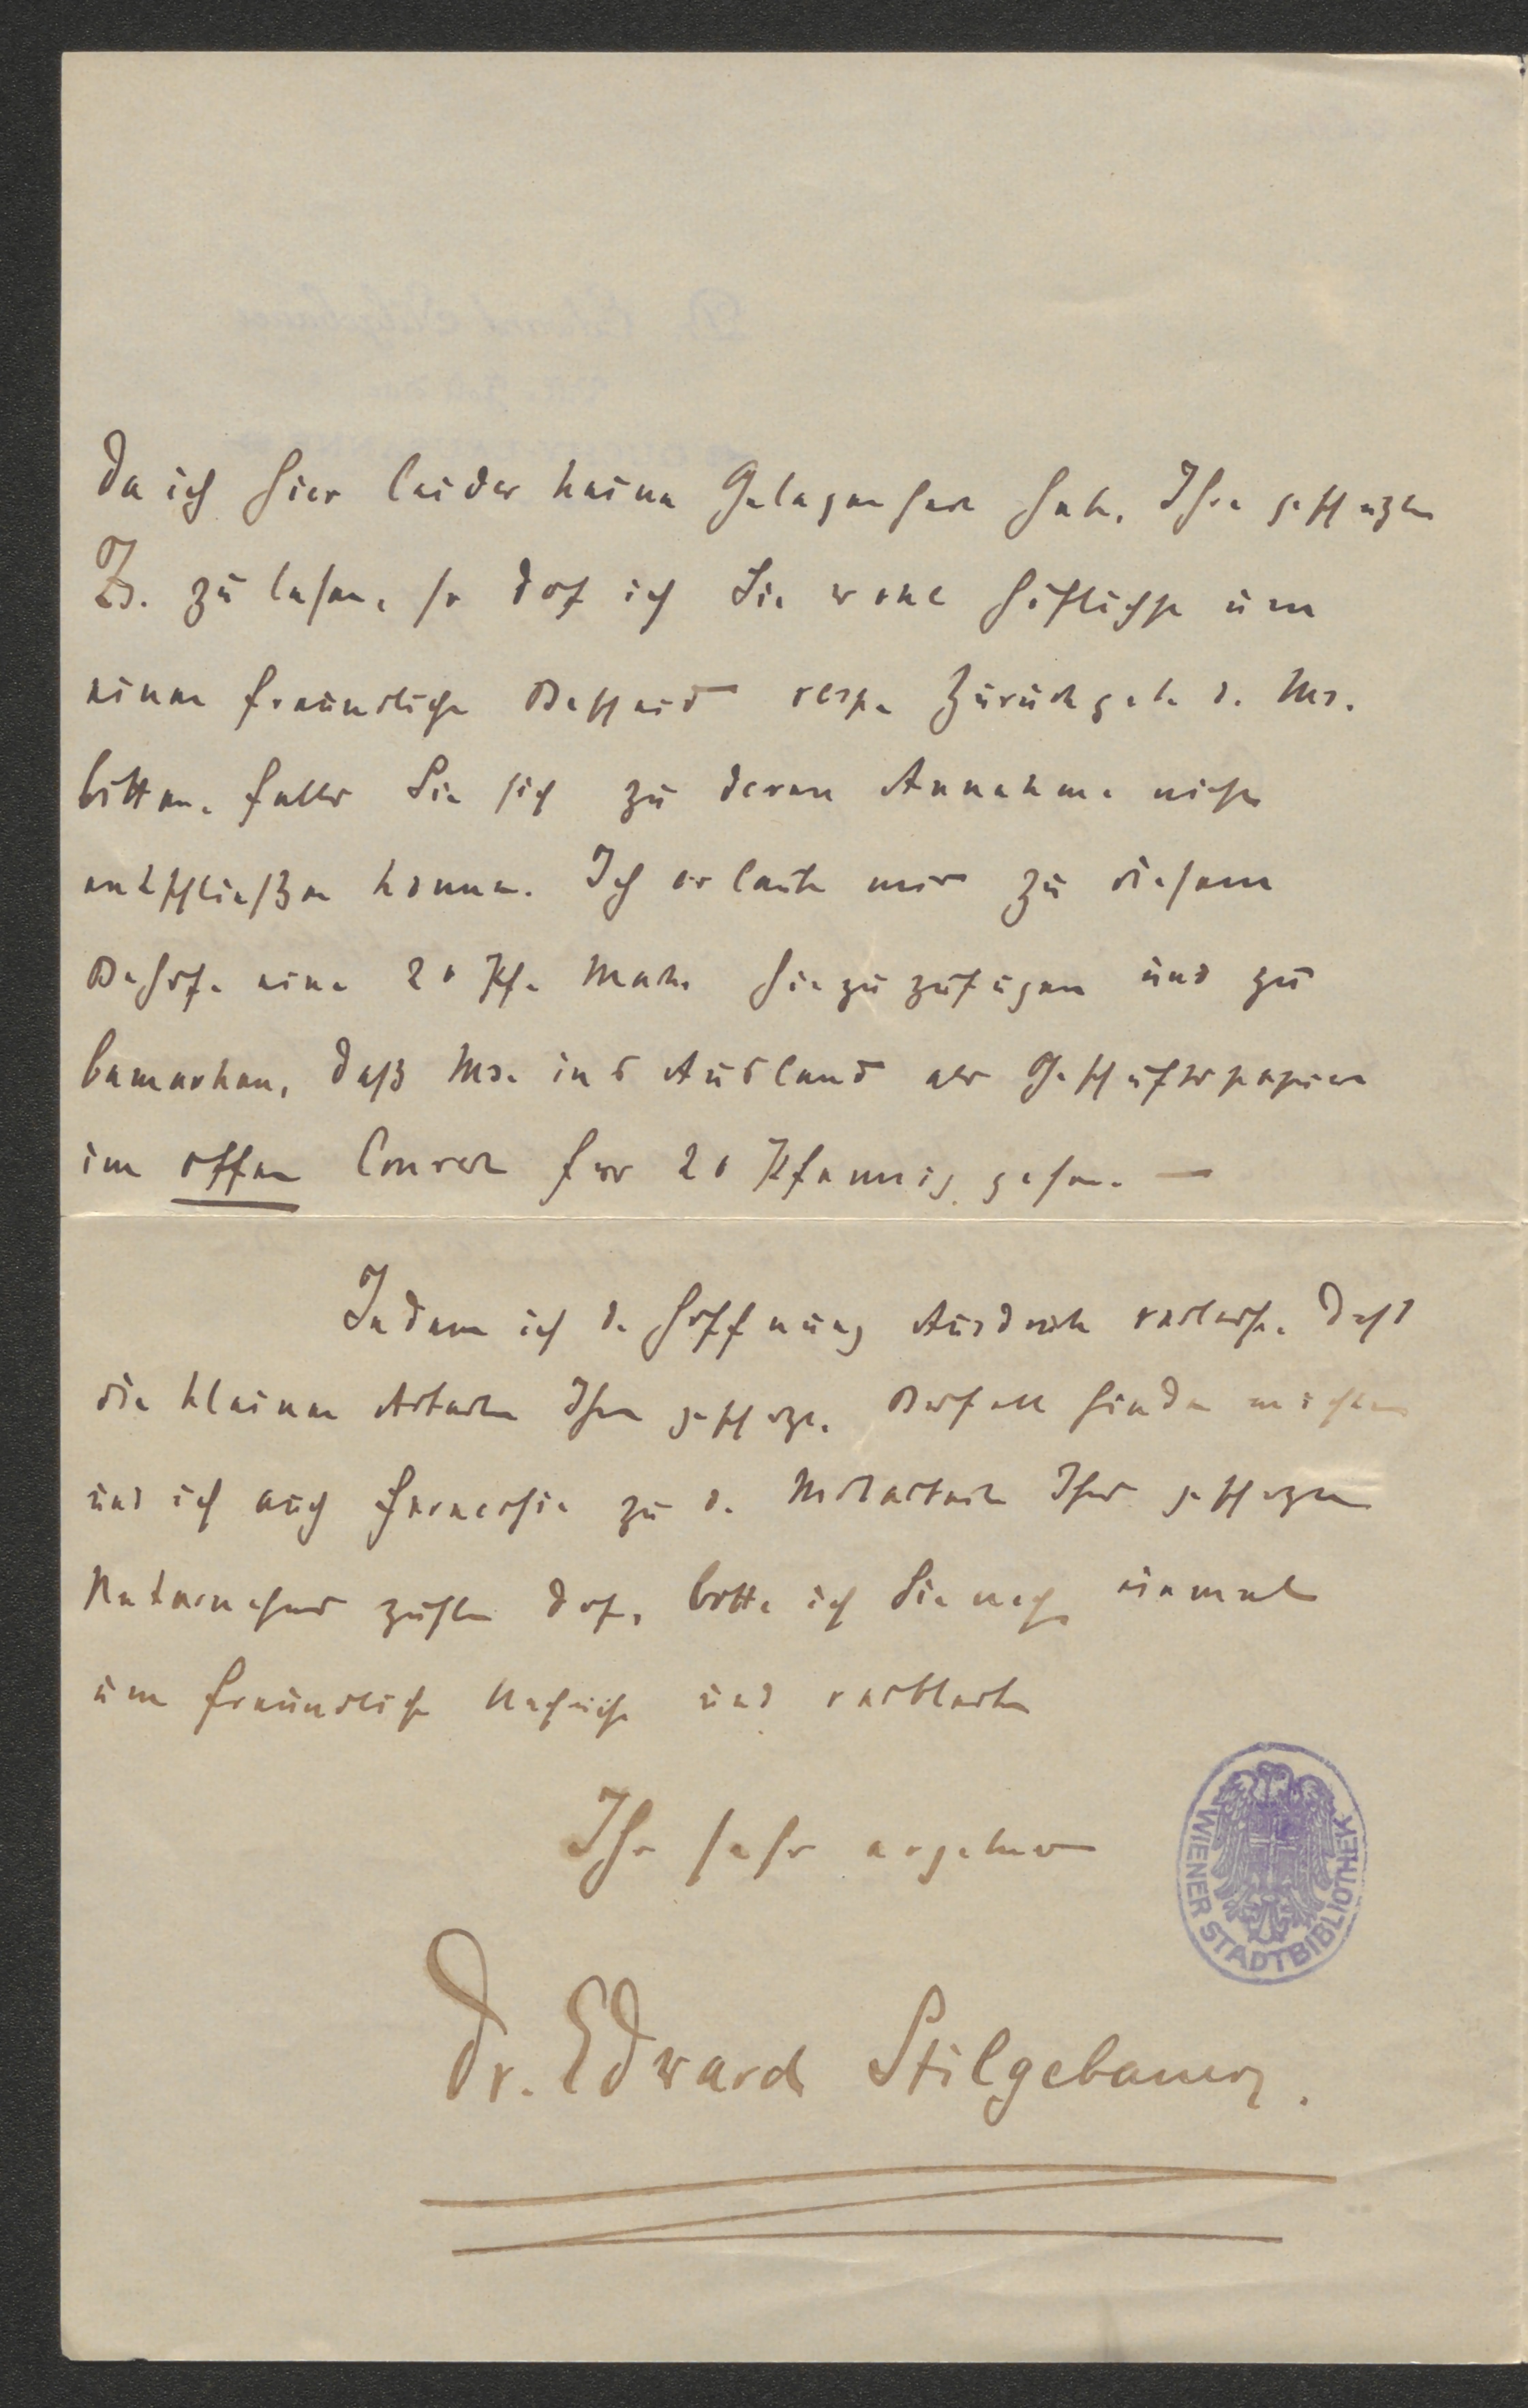 Da ich hier leider keine Gelegenheit habe, Ihre geschätzte
Zs. zu lesen, so darf ich Sie wohl höflichst um
einen freundlichen Bescheid resp. Zurückgabe d. Ms.
bitten, falls Sie sich zu deren Annahme nicht
entschließen können. Ich erlaube mir zu diesem
Behufe eine 20 Pf. Marke hinzuzufügen und zu
bemerken, daß Ms. ins Ausland als Geschäftspapiere
im offen Couvert für 20 Pfennig gehen. —
Indem ich der Hoffnung Ausdruck verleihe, daß
die kleinen Arbeiten Ihren geschätzt. Beifall finden möchten
und ich auch fernerhin zu d. Mitarbeitern Ihres geschätzten
Unternehmens zählen darf, bitte ich Sie noch einmal
um freundliche Nachricht und verbleibe
Ihr sehr ergebener
Dr. Edward Stilgebauer.
WIENER STADTBIBLIOTHEK